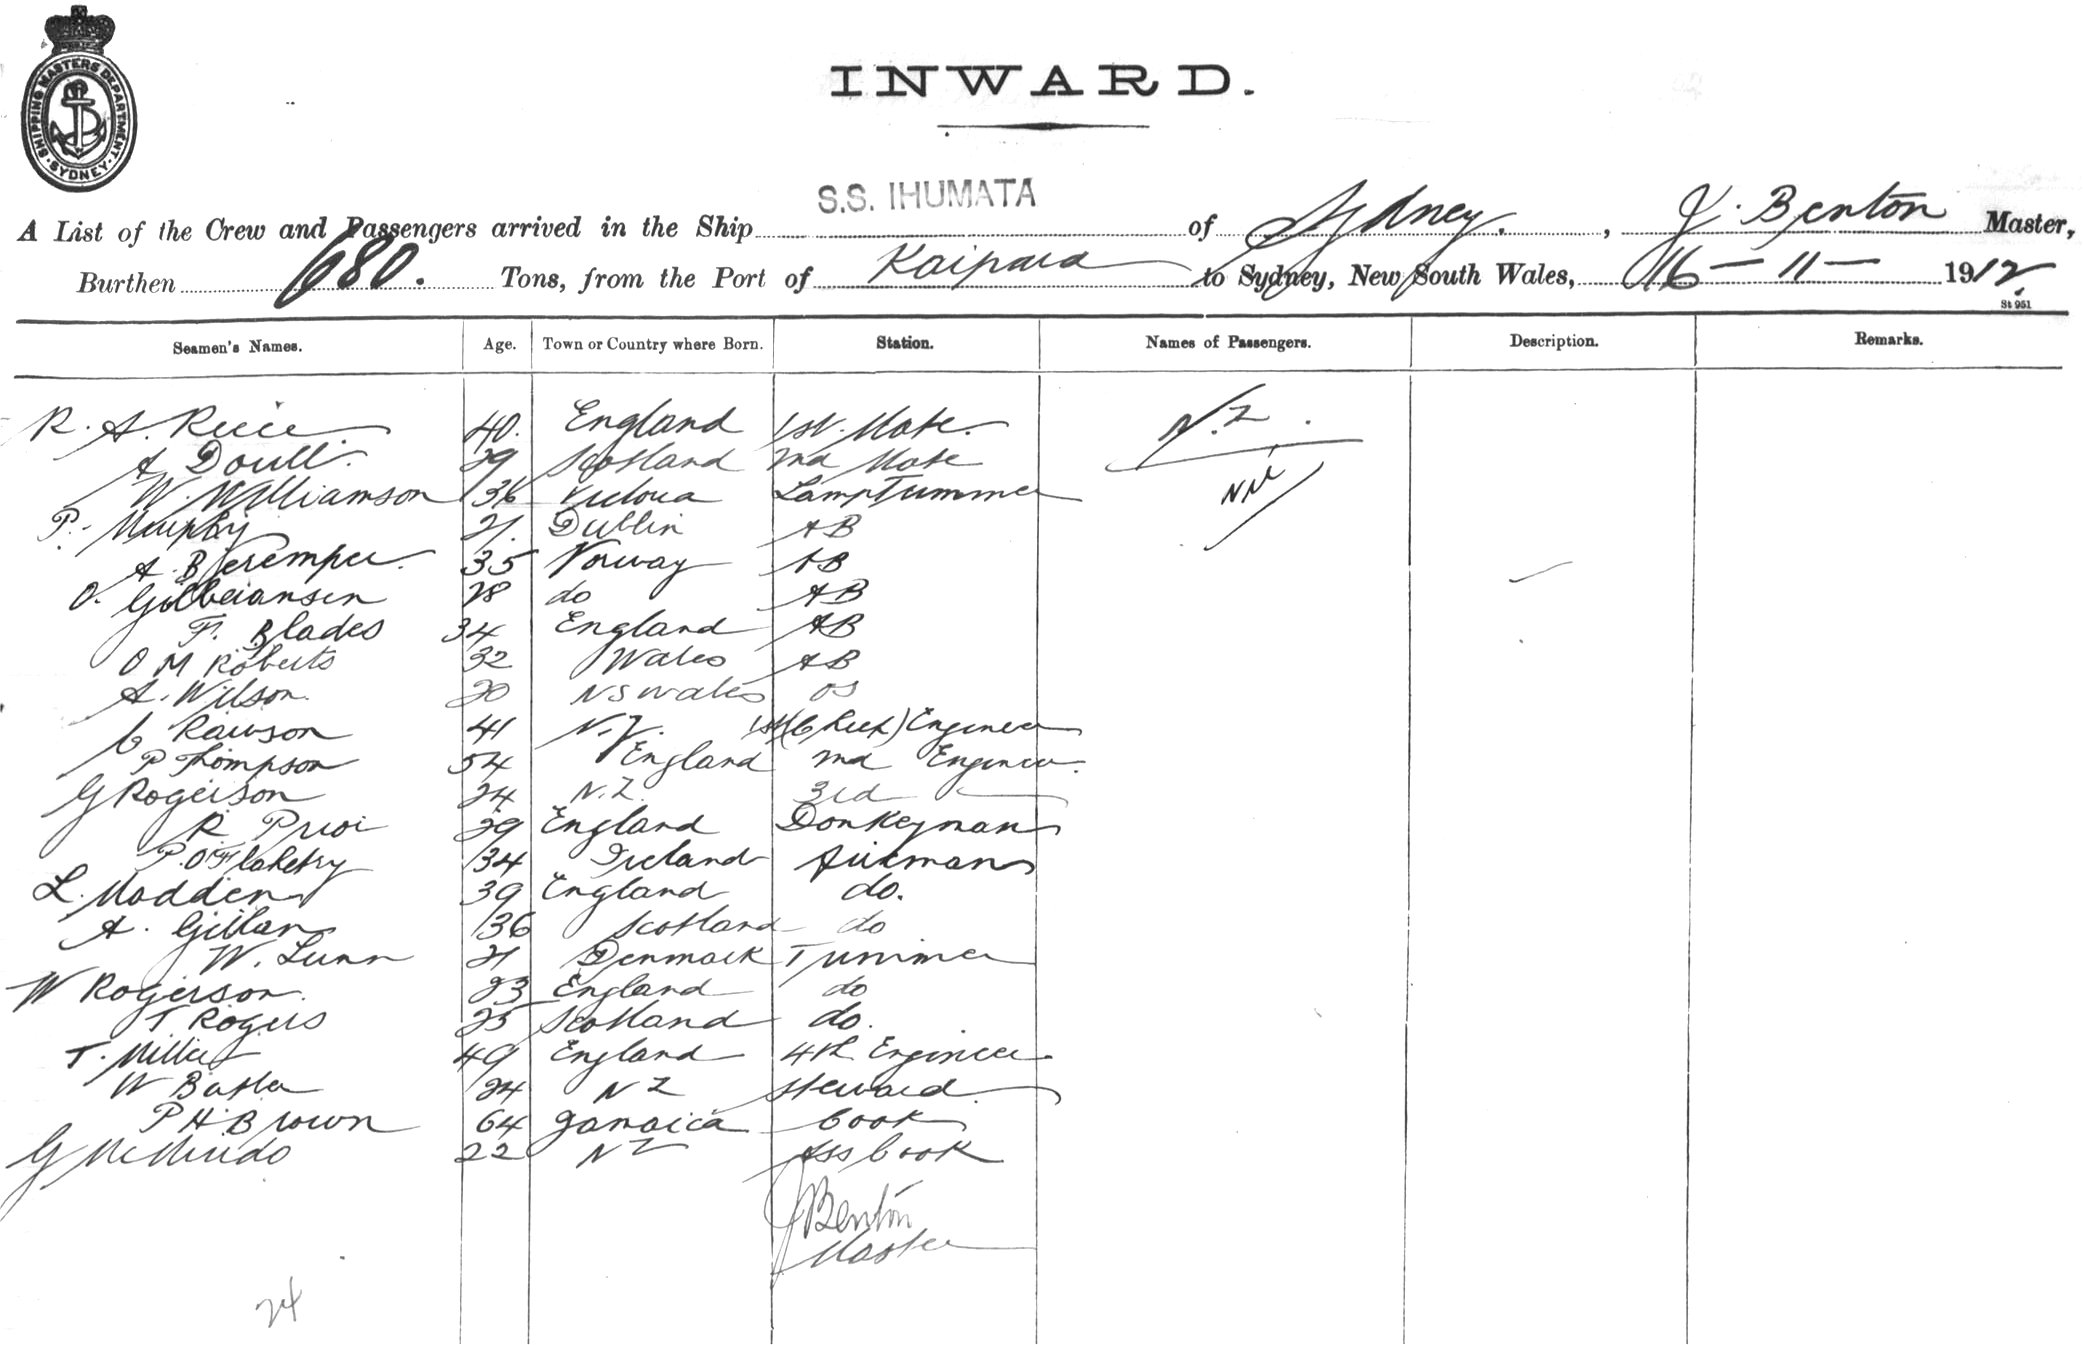 SHIPPING MASTERS DEPARTMENT
SYDNEY
INWARD.
S.S. IHUMATA
A List of the Crew and Passengers arrived in the Ship of Sydney, J. Benton Master,
Burthen 680. Tons, from the Port of Kaipara to Sydney, New South Wales, 16 - 11 - 1912
St 951
Seamen's Names. Age. Town or Country where Born. Station. Names of Passengers. Description. Remarks.
R. A. Reece 40. England 1st. Mate. N.Z.
A Doull. 29 Scotland 2nd Mate
W. Williamson 36 Victoria LampTrimmer Nil
P. Murphy 21. Dublin AB
A. 35 Norway AB
O. 28 do AB
F. Blades 34 England AB
O M Roberts 32 Wales AB
A. Wilson. 20 N S Wales OS
C Rawson 41 N.Z. 1st (Chief) Engineer
P Thompson 54 England 2nd Engineer.
G Rogerson 24 N.Z. 3rd
R Prior 29 England Donkeyman
P. O'Flaherty 34 Ireland Fireman
L. Madden 39 England do.
A. Gillan 36 Scotland do
W. Lunn 21 Denmark Trimmer
W Rogerson. 23 England do
T Rogers 25 Scotland do.
T. Miller 49 England 4th Engineer
W Butler 24 N Z Steward
P H Brown 64 Jamaica Cook
G 22 N Z Ass Cook
J Benton
Master
24